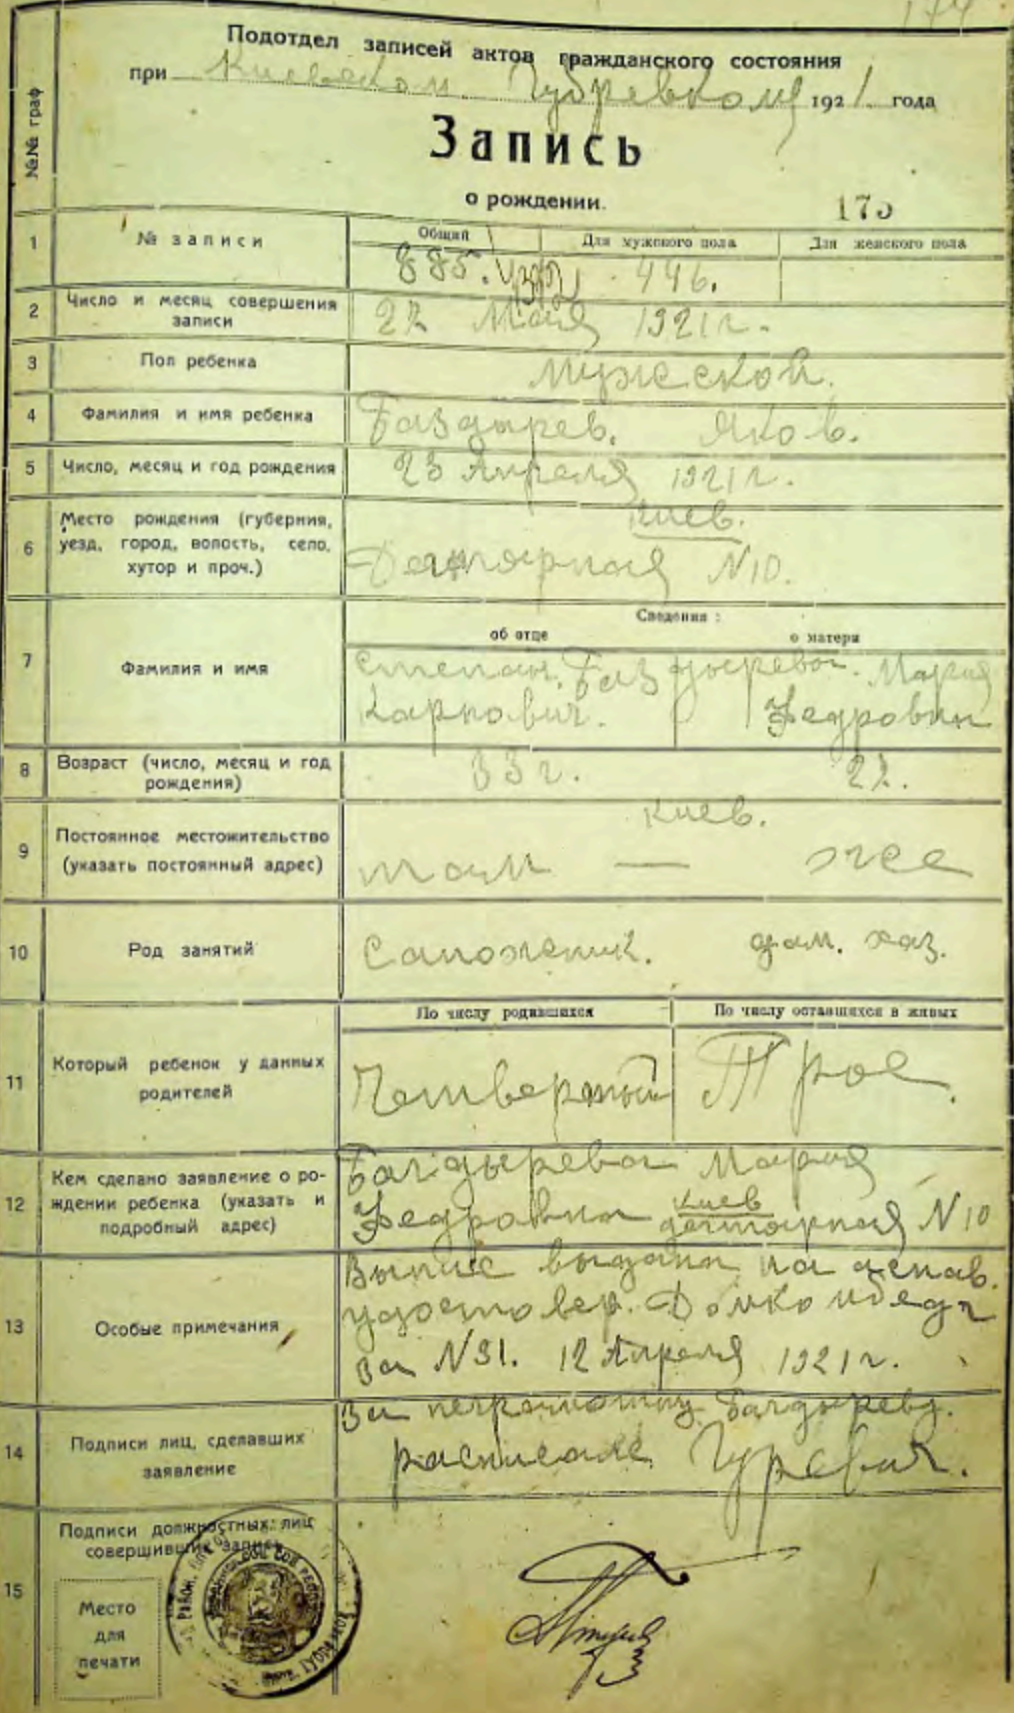 174
Подотдел записей актов гражданского состояния
при Киевском Губревкому 1921 года
Запись
о рождении.
175
№№ граф
1 № записи Общий Для мужского пола Для женского пола
885. 446.
2 Число и месяц совершения записи 27 Мая 1921 г.
3 Пол ребенка мужеской.
4 Фамилия и имя ребенка Баздырев. Яков.
5 Число, месяц и год рождения 23 Апреля 1921 г.
6 Место рождения (губерния, уезд, город, волость, село, хутор и проч.) Киев.
Дегтярная N 10.
Сведения:
об отце о матери
7 Фамилия и имя Степан. Баздырева. Мария
Карпович. Федровин
8 Возраст (число, месяц и год рождения) 33 г. 27.
9 Постоянное местожительство (указать постоянный адрес) Киев.
там — же
10 Род занятий Сапожник. дом. хоз.
По числу родившихся По числу оставшихся в живых
11 Который ребенок у данных родителей Четвертый Трое.
12 Кем сделано заявление о рождении ребенка (указать и подробный адрес) Багдырева Мария
Федровна Киев дегтярная N 10
13 Особые примечания Выпис выдана на
удостовер. Домкома
за N 31. 12 Апреля 1921 г.
14 Подписи лиц, сделавших заявление За неграмотну Багдыреву.
расписалс Гуревич.
15 Подписи должностных лиц совершивших запись
Место
для
печати